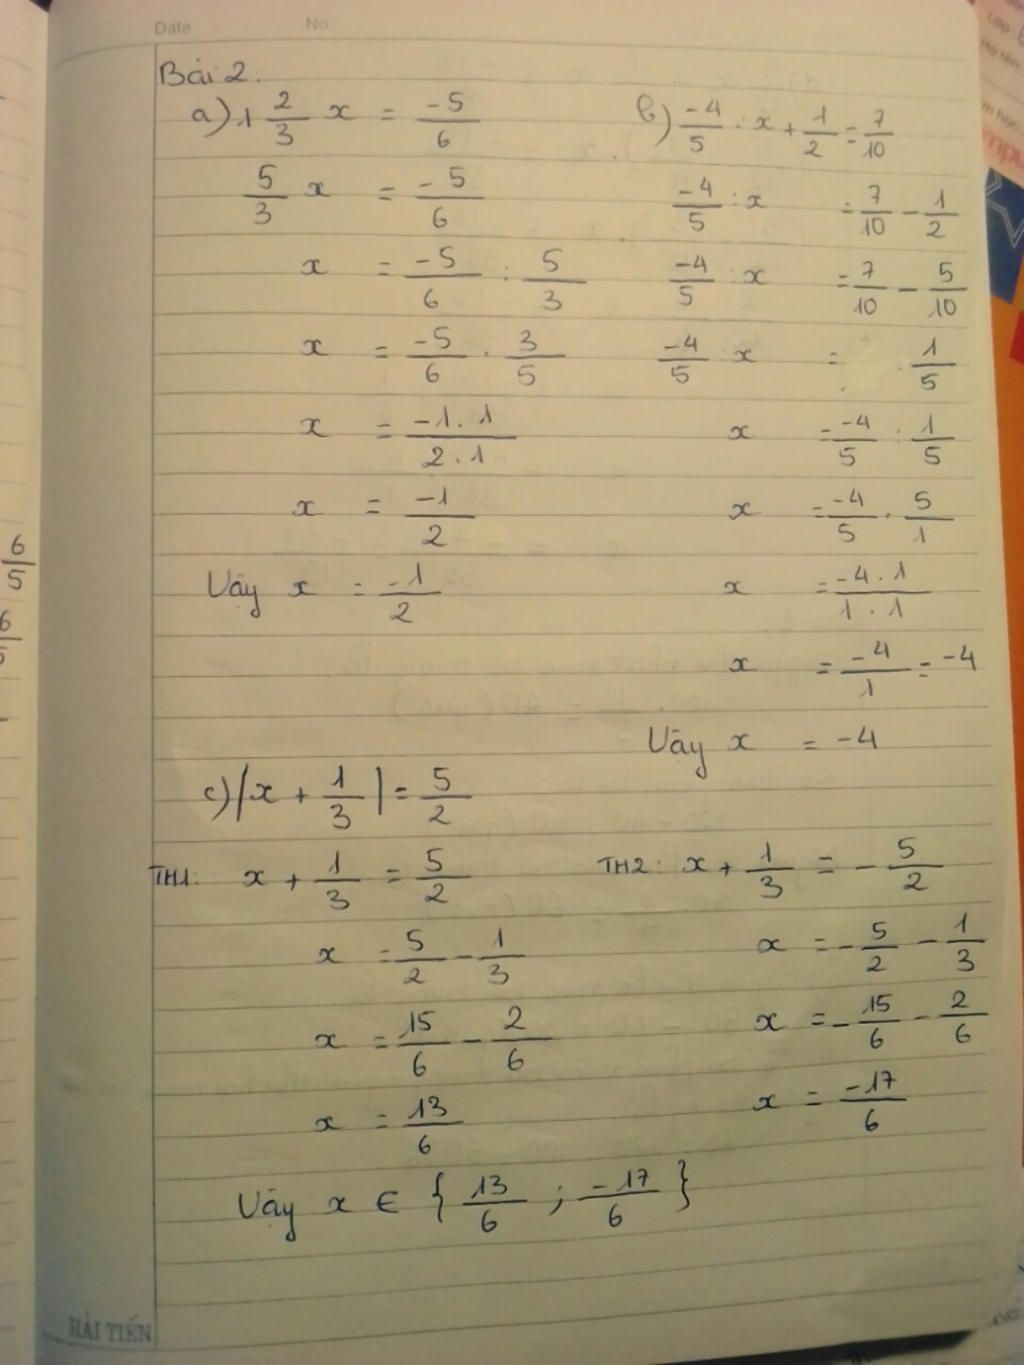 Date No
Bài 2:
a) 1 2/3 x = -5/6
5/3 x = -5/6
x = -5/6 : 5/3
x = -5/6 . 3/5
x = -1.1/2.1
x = -1/2
Vậy x = -1/2
b) -4/5 : x + 1/2 = 7/10
-4/5 : x = 7/10 - 1/2
-4/5 : x = 7/10 - 5/10
-4/5 : x = 1/5
x = -4/5 : 1/5
x = -4/5 . 5/1
x = -4.1/1.1
x = -4/1 = -4
Vậy x = -4
c) |x + 1/3| = 5/2
TH1: x + 1/3 = 5/2
x = 5/2 - 1/3
x = 15/6 - 2/6
x = 13/6
TH2: x + 1/3 = - 5/2
x = - 5/2 - 1/3
x = - 15/6 - 2/6
x = -17/6
Vậy x ∈ {13/6 ; -17/6}
HẢI TIẾN
6/5
6/5